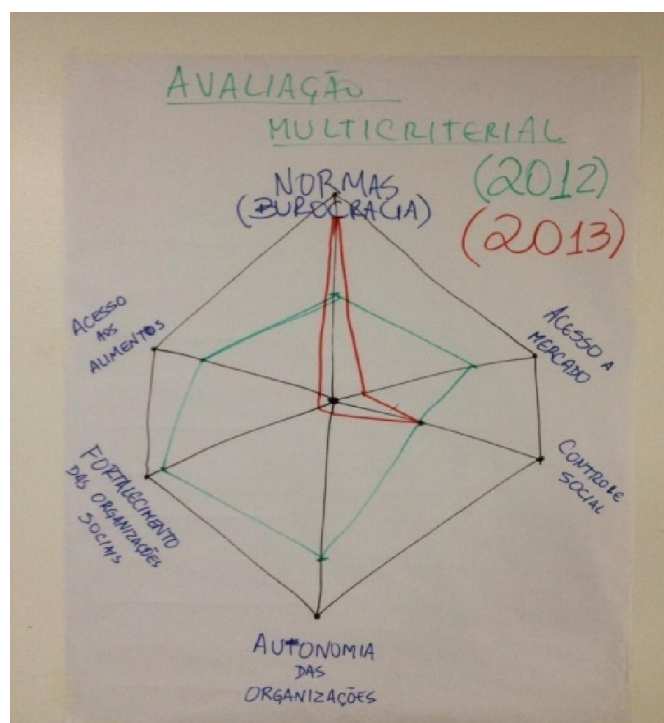 AVALIAÇÃO
MULTICRITERIAL
(2012)
(2013)
NORMAS
(BUROCRACIA)
ACESSO A
MERCADO
CONTROLE
SOCIAL
AUTONOMIA
DAS
ORGANIZAÇÕES
FORTALECIMENTO
DAS ORGANIZAÇÕES
SOCIAIS
ACESSO
AOS
ALIMENTOS